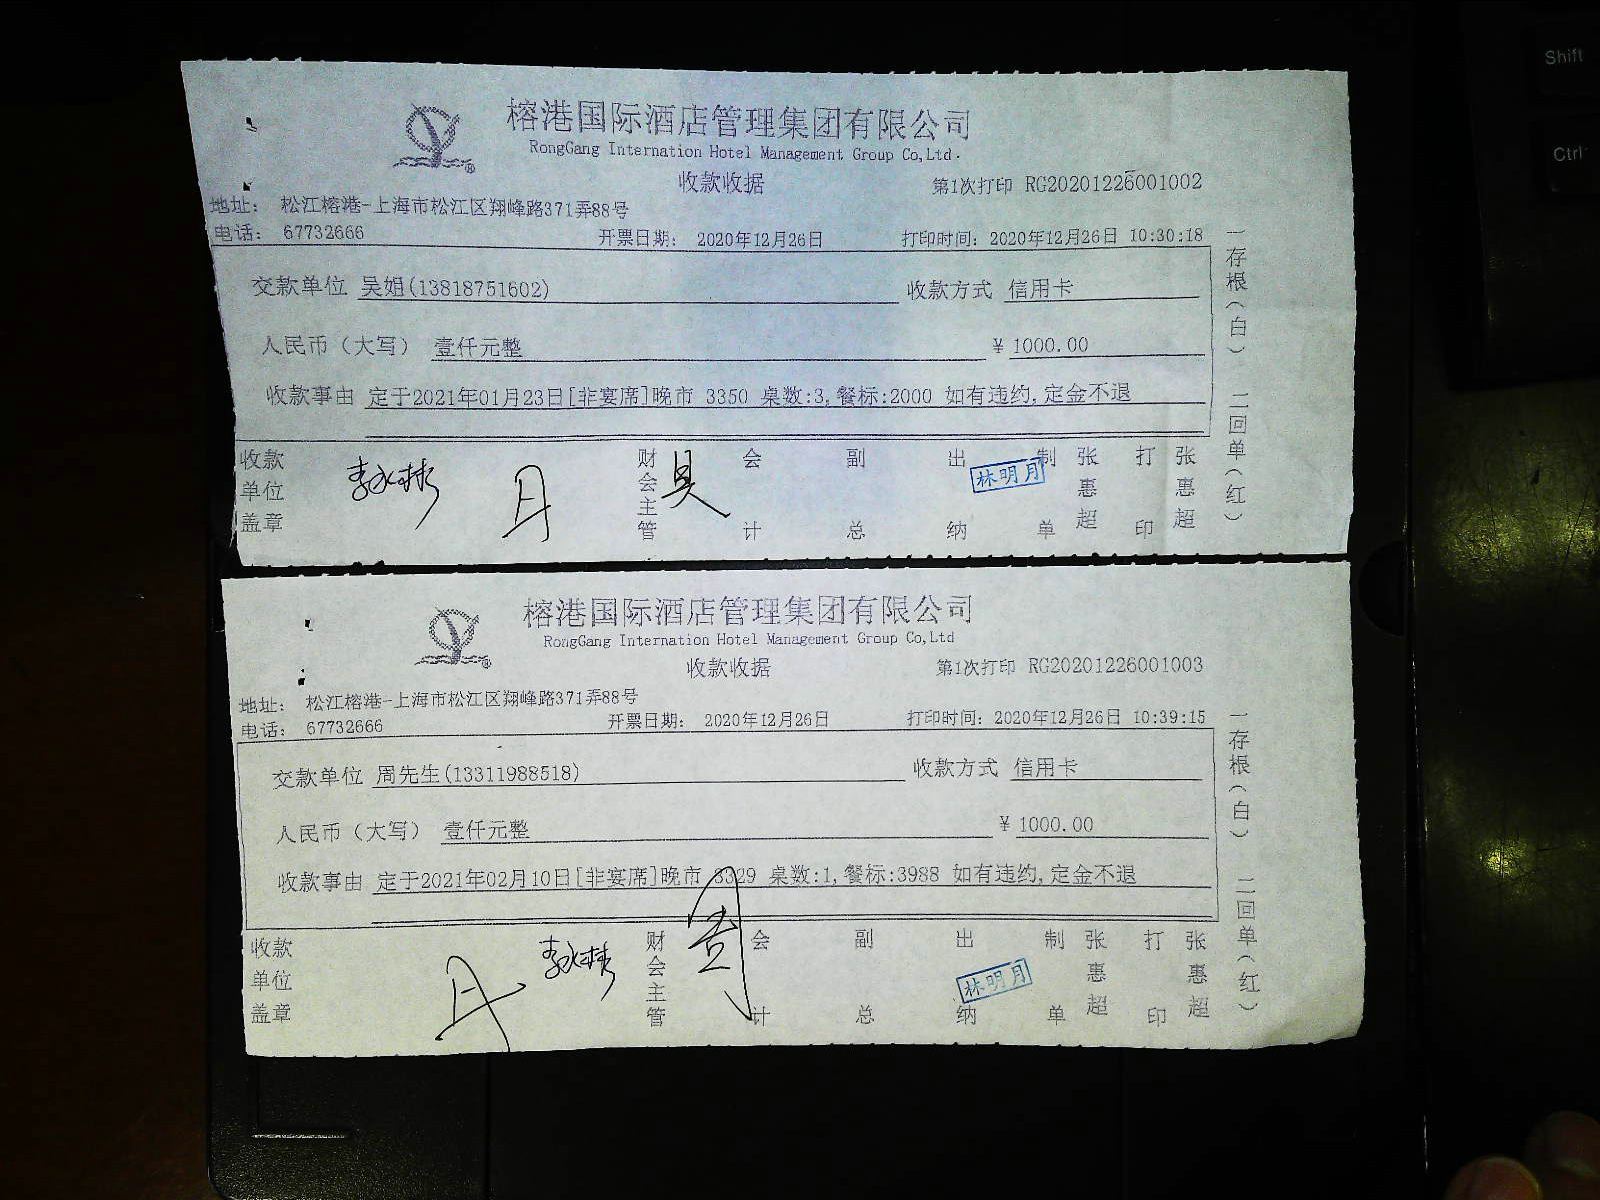 榕港国际酒店管理集团有限公司
RongGang Internation Hotel Management Group Co,Ltd.
收款收据 第1次打印 RG20201226001002
地址： 松江榕港-上海市松江区翔峰路371弄88号
电话： 67732666 开票日期： 2020年12月26日 打印时间：2020年12月26日 10:30:18
交款单位 吴姐(13818751602) 收款方式 信用卡
人民币（大写） 壹仟元整 ￥1000.00
收款事由 定于2021年01月23日[非宴席]晚市 3350 桌数:3,餐标:2000 如有违约,定金不退
收款单位盖章 财会主管 会计 副总 出纳 林明月 制单 张惠超 打印 张惠超
一存根（白） 二回单（红）
榕港国际酒店管理集团有限公司
RongGang Internation Hotel Management Group Co,Ltd
收款收据 第1次打印 RG20201226001003
地址： 松江榕港-上海市松江区翔峰路371弄88号
电话： 67732666 开票日期： 2020年12月26日 打印时间：2020年12月26日 10:39:15
交款单位 周先生(13311988518) 收款方式 信用卡
人民币（大写） 壹仟元整 ￥1000.00
收款事由 定于2021年02月10日[非宴席]晚市 3329 桌数:1,餐标:3988 如有违约,定金不退
收款单位盖章 财会主管 会计 副总 出纳 林明月 制单 张惠超 打印 张惠超
一存根（白） 二回单（红）
Shift
Ctrl